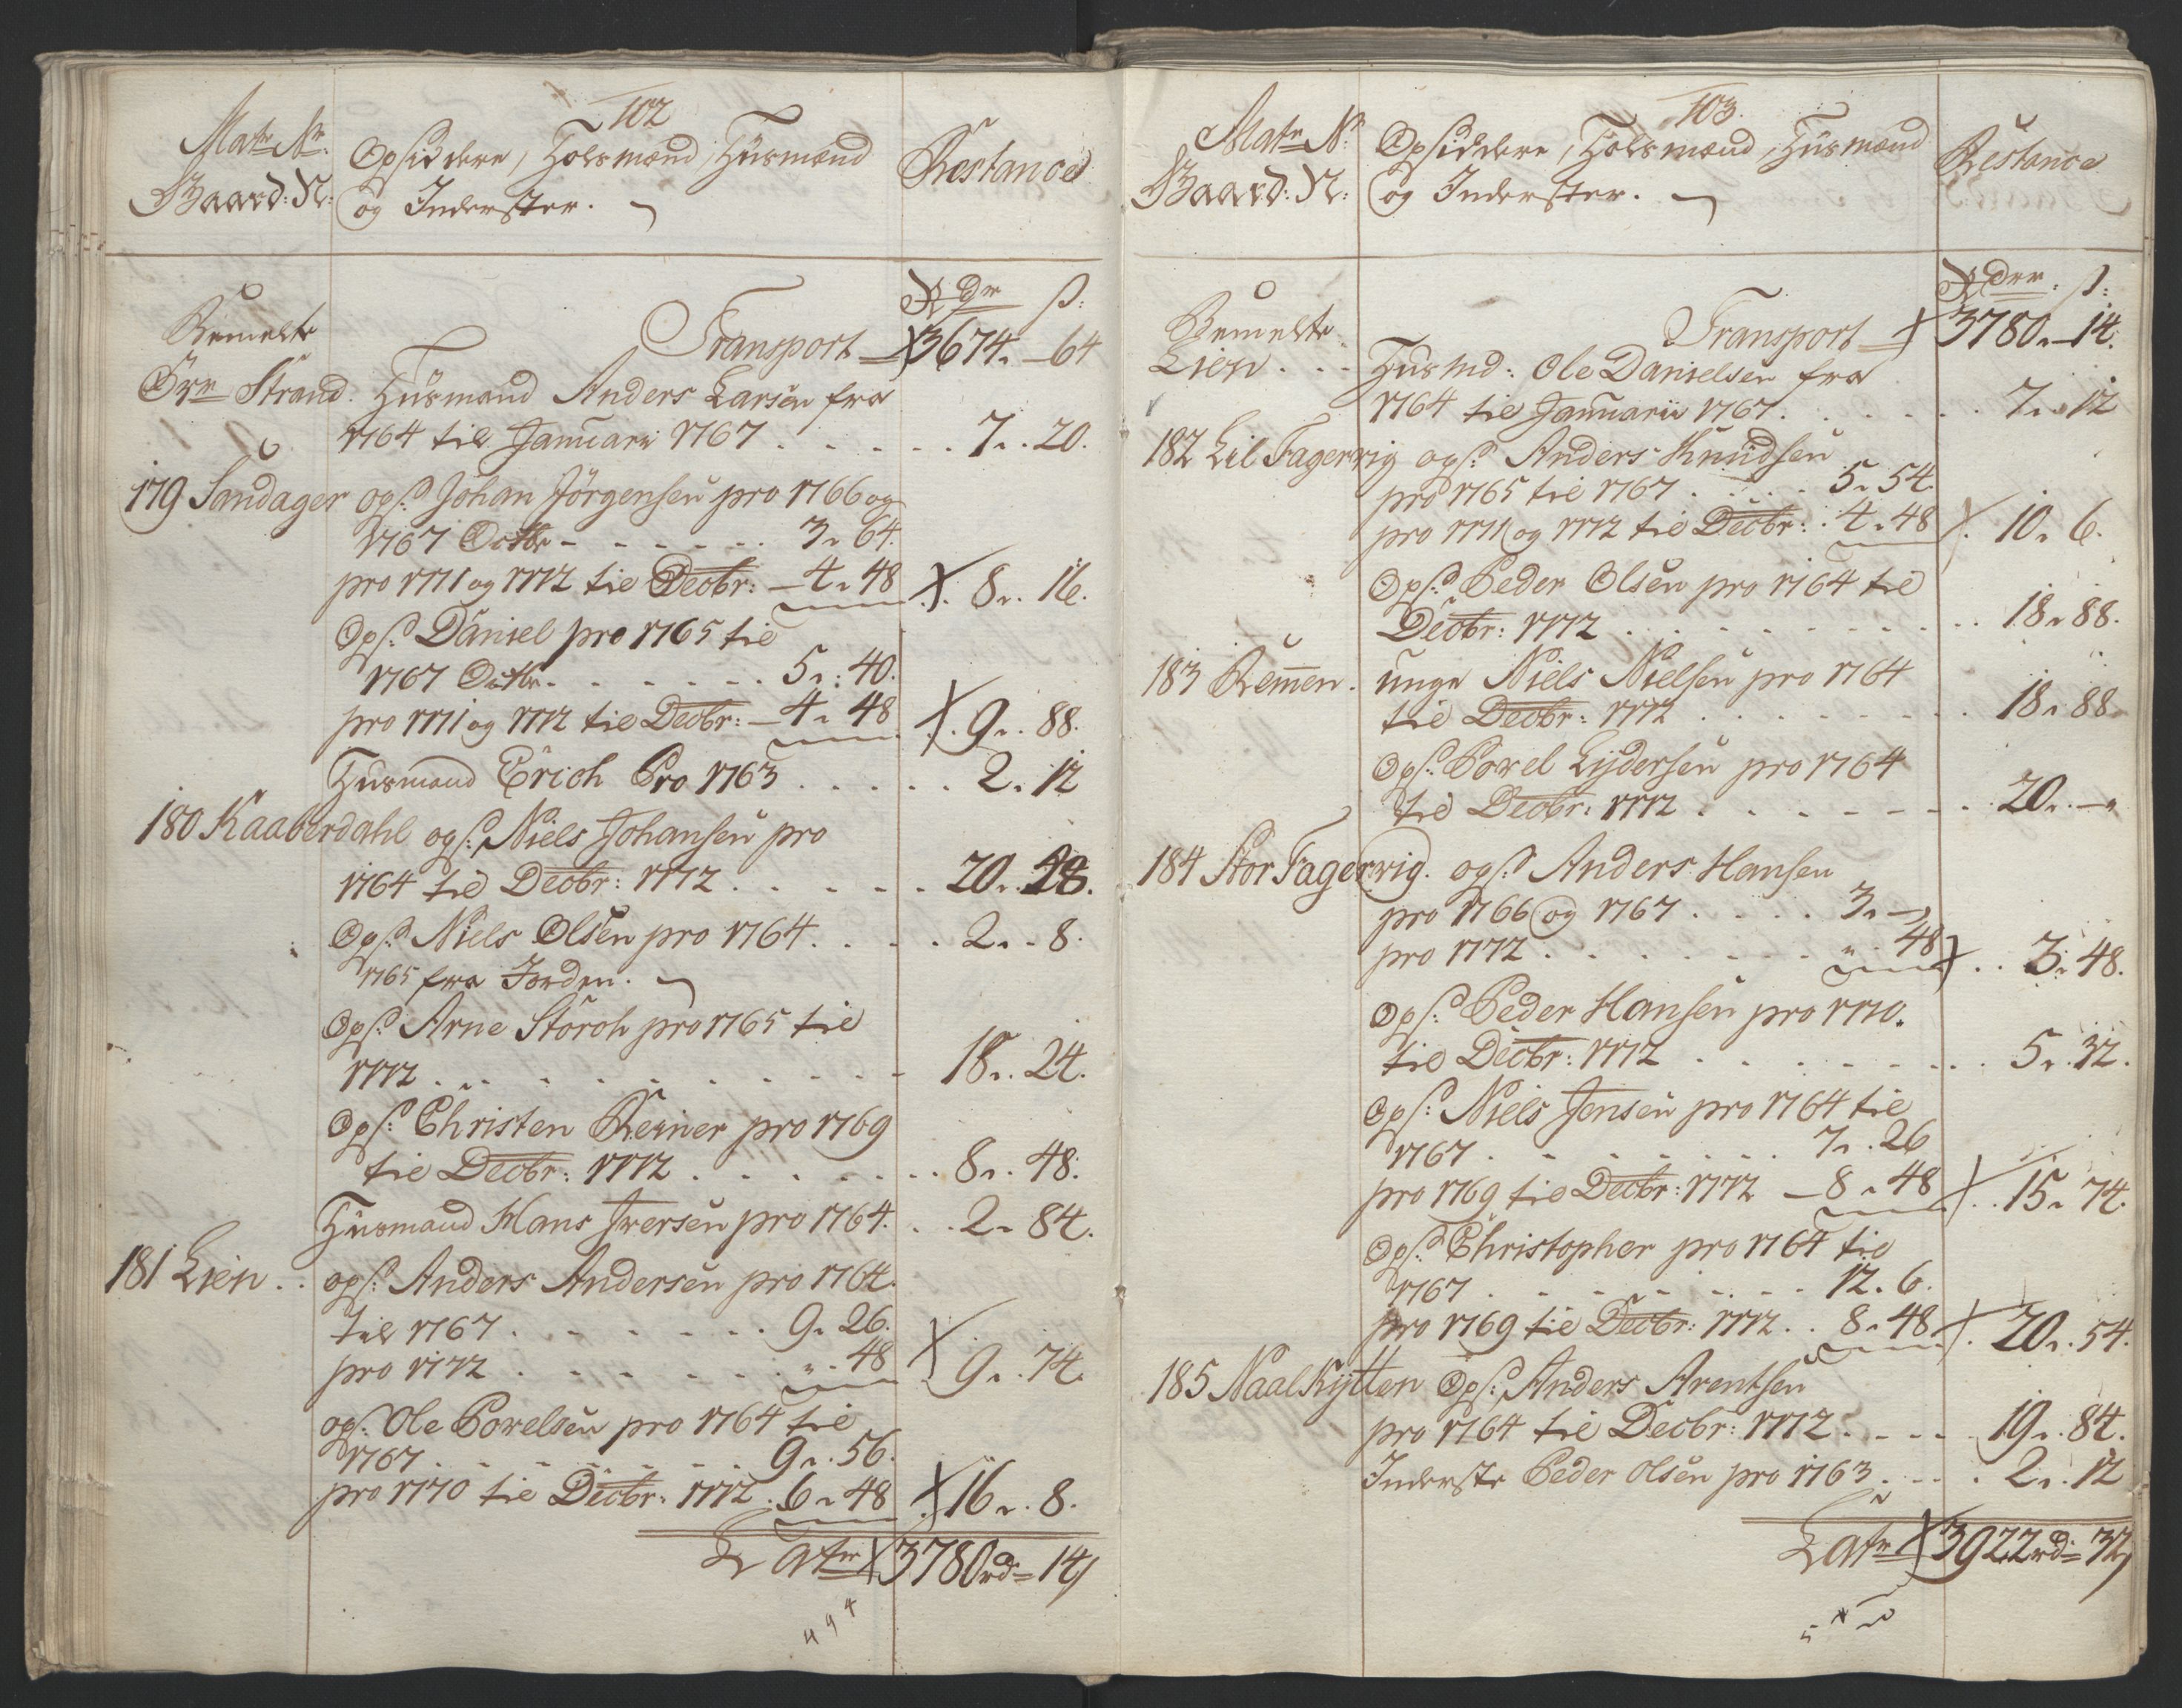 102
Matr. Nr. Opsiddere, Holsmænd, Huusmænd Restance
Gaard: N: og Inderster.
Rdr ß:
Bemelte Transport 3674. 64
Øvr Strand. Huusmand Anders Larsen fra
1764 til Januari 1767 . . . . . 7. 20.
179 Sandager ops: Johan Jörgensen pro 1766 og
1767 Octbr - - - - - 3. 64.
pro 1771 og 1772 til Decbr: - 4. 48 8. 16.
Ops: Daniel pro 1765 til
1767 Octbr - - - - - 5. 40.
pro 1771 og 1772 til Decbr: - 4. 48 9. 88.
Huusmand Erich Pro 1763 . . . . . 2. 12
180 Kaaberdahl ops: Niels Johansen pro
1764 til Decbr: 1772 . . . . . 20. 28.
Ops: Niels Olsen pro 1764. . . . 2. 8.
1765 fra Jorden.
Ops: Arne Storch pro 1765 til
1772 . . . . . . . . 18. 24.
Ops: Christen Reiner pro 1769
til Decbr: 1772 . . . . . . 8. 48.
Huusmand Hans Iversen pro 1764. . . 2. 84.
181 Lien . . ops: Anders Andersen pro 1764.
til 1767 . . . . . . 9. 26.
pro 1772 . . . . . . „. 48 9. 74.
ops: Ole Povelsen pro 1764 til
1767 . . . . . . 9. 56.
pro 1770 til Decbr: 1772 . 6. 48 16. 8.
Latr 3780 rd = 14
494
103.
Matr N: Opsiddere, Holsmænd, Huusmænd Restance
Gaard: N: og Inderster.
Rdr. ß:
Bemelte Transport 3780. 14.
Lien . . . Huusmd: Ole Danielsen fra
1764 til Januarii 1767. . . . . . 7. 12
182 Lil Fagervig ops: Anders Knudsen
pro 1765 til 1767 . . . . 5. 54.
pro 1771 og 1772 til Decbr: . 4. 48 10. 6.
Ops: Peder Olsen pro 1764 til
Decbr: 1772 . . . . . . . . 18. 88.
183 Remen. unge Niels Nielsen pro 1764
til Decbr: 1772 . . . . . . . 18. 88.
Ops: Povel Lydersen pro 1764
til Decbr: 1772 . . . . . . . 20. —
184 Stor Fagervig. ops: Anders Hansen
pro 1766 og 1767 . . . . 3. —
pro 1772 . . . . . . „. 48 3. 48.
Ops: Peder Hansen pro 1770.
til Decbr: 1772 . . . . . . . 5. 32.
Ops: Niels Jensen pro 1764 til
1767 . . . . . . . 7. 26
pro 1769 til Decbr: 1772 - 8. 48 15. 74.
Ops: Christopher pro 1764 til
1767 . . . . . . . 12. 6.
pro 1769 til Decbr: 1772 . . 8. 48 20. 54.
185 Naalkytten Ops: Anders Arentsen
pro 1764 til Decbr: 1772 . . . . 19. 84.
Inderste Peder Olsen pro 1763. . . . 2. 12
Latr 3922 rd = 32